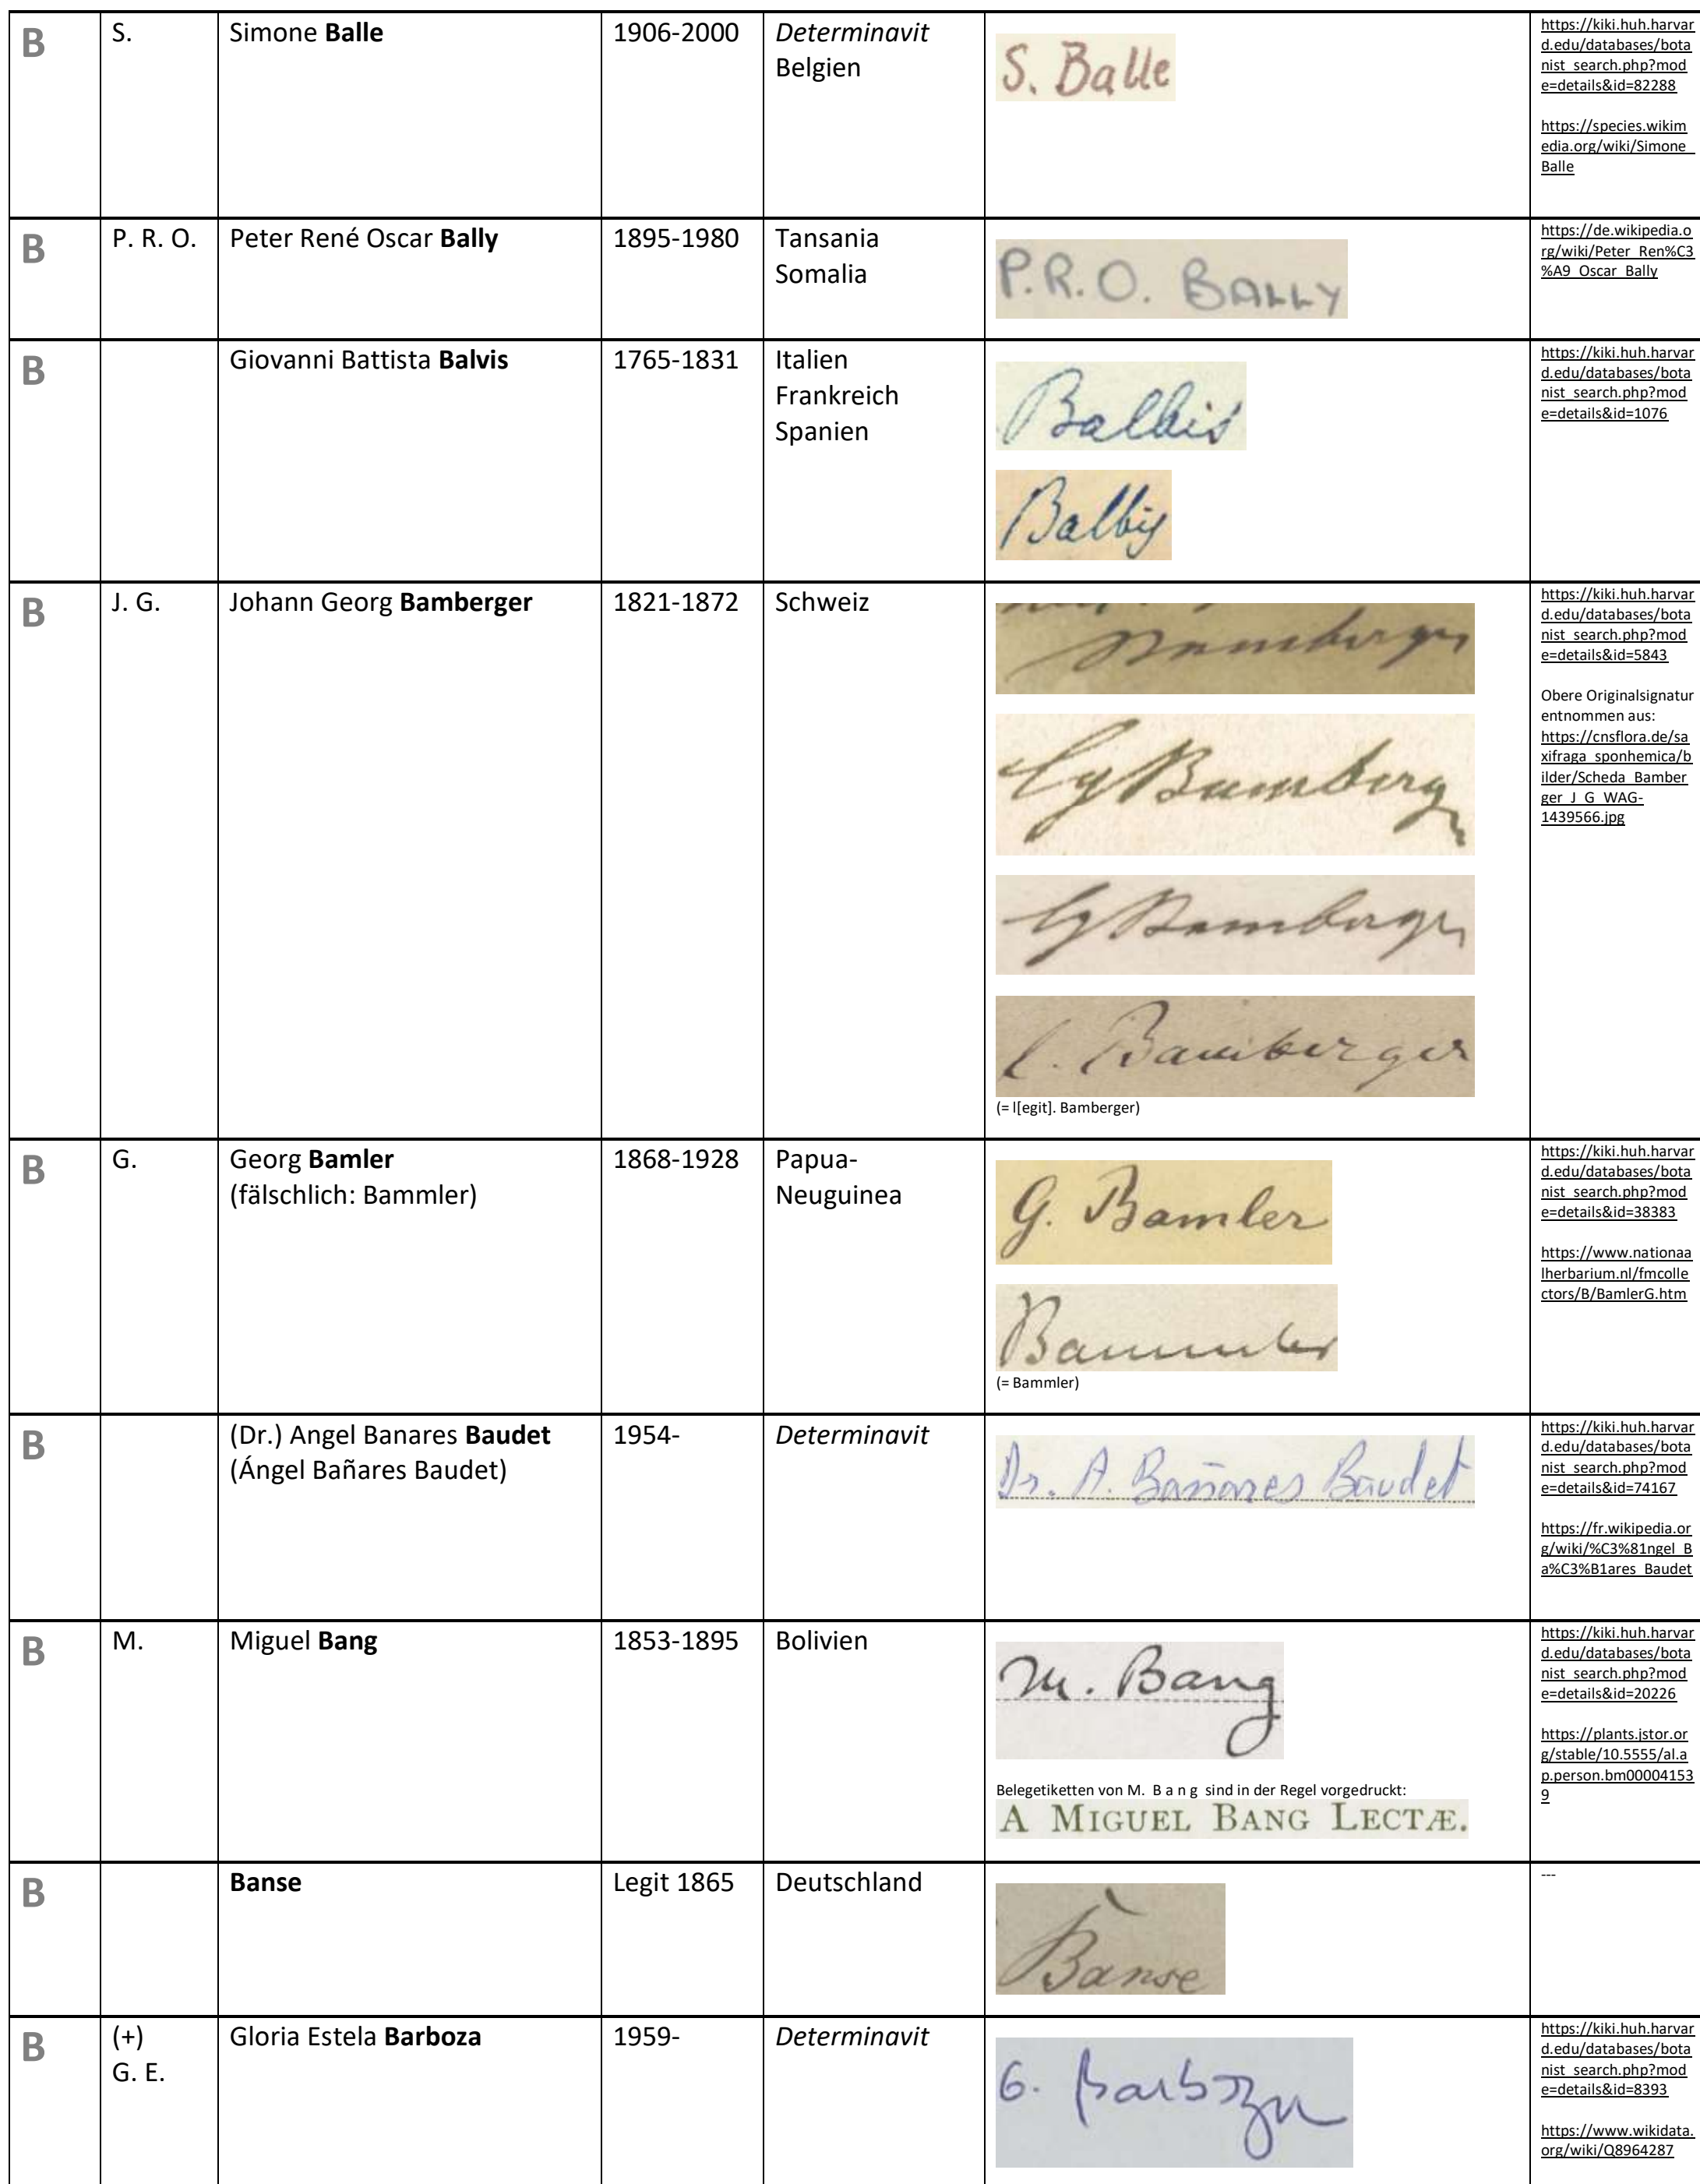 B
S.
Simone Balle
1906-2000
Determinavit
Belgien
S. Balle
https://kiki.huh.harvar
d.edu/databases/bota
nist_search.php?mod
e=details&id=82288
https://species.wikim
edia.org/wiki/Simone_
Balle
B
P. R. O.
Peter René Oscar Bally
1895-1980
Tansania
Somalia
P.R.O. BALLY
https://de.wikipedia.o
rg/wiki/Peter_Ren%C3
%A9_Oscar_Bally
B
Giovanni Battista Balvis
1765-1831
Italien
Frankreich
Spanien
Balbis
Balbis
https://kiki.huh.harvar
d.edu/databases/bota
nist_search.php?mod
e=details&id=1076
B
J. G.
Johann Georg Bamberger
1821-1872
Schweiz
Bamberger
Bamberger
Bamberger
l. Bamberger
(= l[egit]. Bamberger)
https://kiki.huh.harvar
d.edu/databases/bota
nist_search.php?mod
e=details&id=5843
Obere Originalsignatur
entnommen aus:
https://cnsflora.de/sa
xifraga_sponhemica/b
ilder/Scheda_Bamber
ger_J_G_WAG-
1439566.jpg
B
G.
Georg Bamler
(fälschlich: Bammler)
1868-1928
Papua-
Neuguinea
G. Bamler
Bammler
(= Bammler)
https://kiki.huh.harvar
d.edu/databases/bota
nist_search.php?mod
e=details&id=38383
https://www.nationaa
lherbarium.nl/fmcolle
ctors/B/BamlerG.htm
B
(Dr.) Angel Banares Baudet
(Ángel Bañares Baudet)
1954-
Determinavit
Dr. A. Bañares Baudet
https://kiki.huh.harvar
d.edu/databases/bota
nist_search.php?mod
e=details&id=74167
https://fr.wikipedia.or
g/wiki/%C3%81ngel_B
a%C3%B1ares_Baudet
B
M.
Miguel Bang
1853-1895
Bolivien
M. Bang
Belegetiketten von M. B a n g sind in der Regel vorgedruckt:
A MIGUEL BANG LECTÆ.
https://kiki.huh.harvar
d.edu/databases/bota
nist_search.php?mod
e=details&id=20226
https://plants.jstor.or
g/stable/10.5555/al.a
p.person.bm00004153
9
B
Banse
Legit 1865
Deutschland
Banse
---
B
(+)
G. E.
Gloria Estela Barboza
1959-
Determinavit
G. Barboza
https://kiki.huh.harvar
d.edu/databases/bota
nist_search.php?mod
e=details&id=8393
https://www.wikidata.
org/wiki/Q8964287